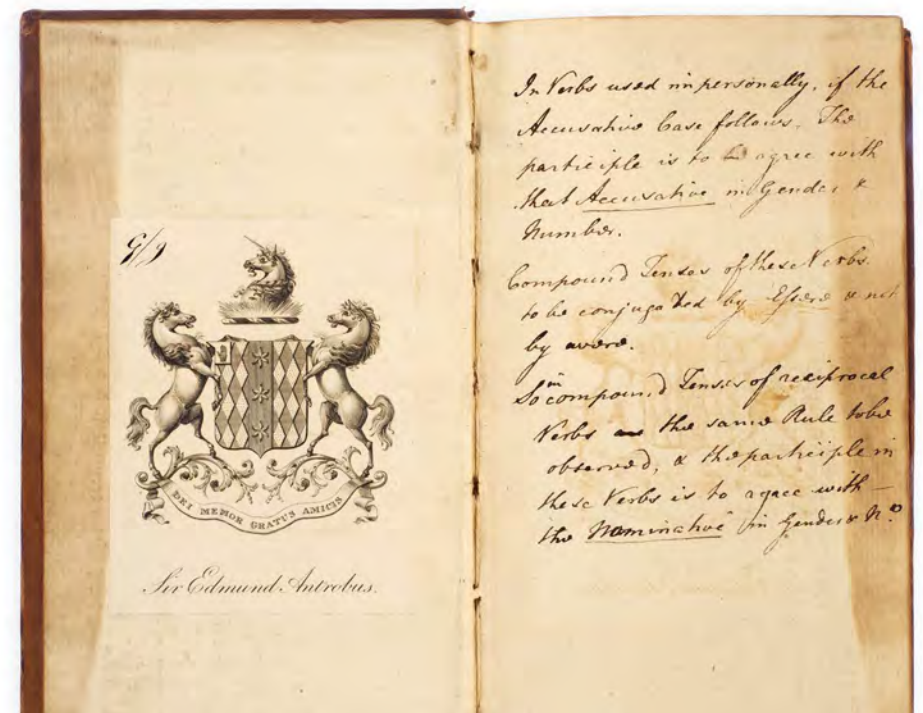 DEI MEMOR GRATUS AMICIS
Sir Edmund Antrobus.
In Verbs used impersonally, if the
Accusative Case follows. The
participle is to agree with
that Accusative in Gender &
Number.
Compound Tenses of these Verbs
to be conjugated by Essere & not
by avere.
So in compound Tenses of reciprocal
Verbs the same Rule to be
observed, & the participle in
these Verbs is to agree with —
the Nominative in Gender & N.o